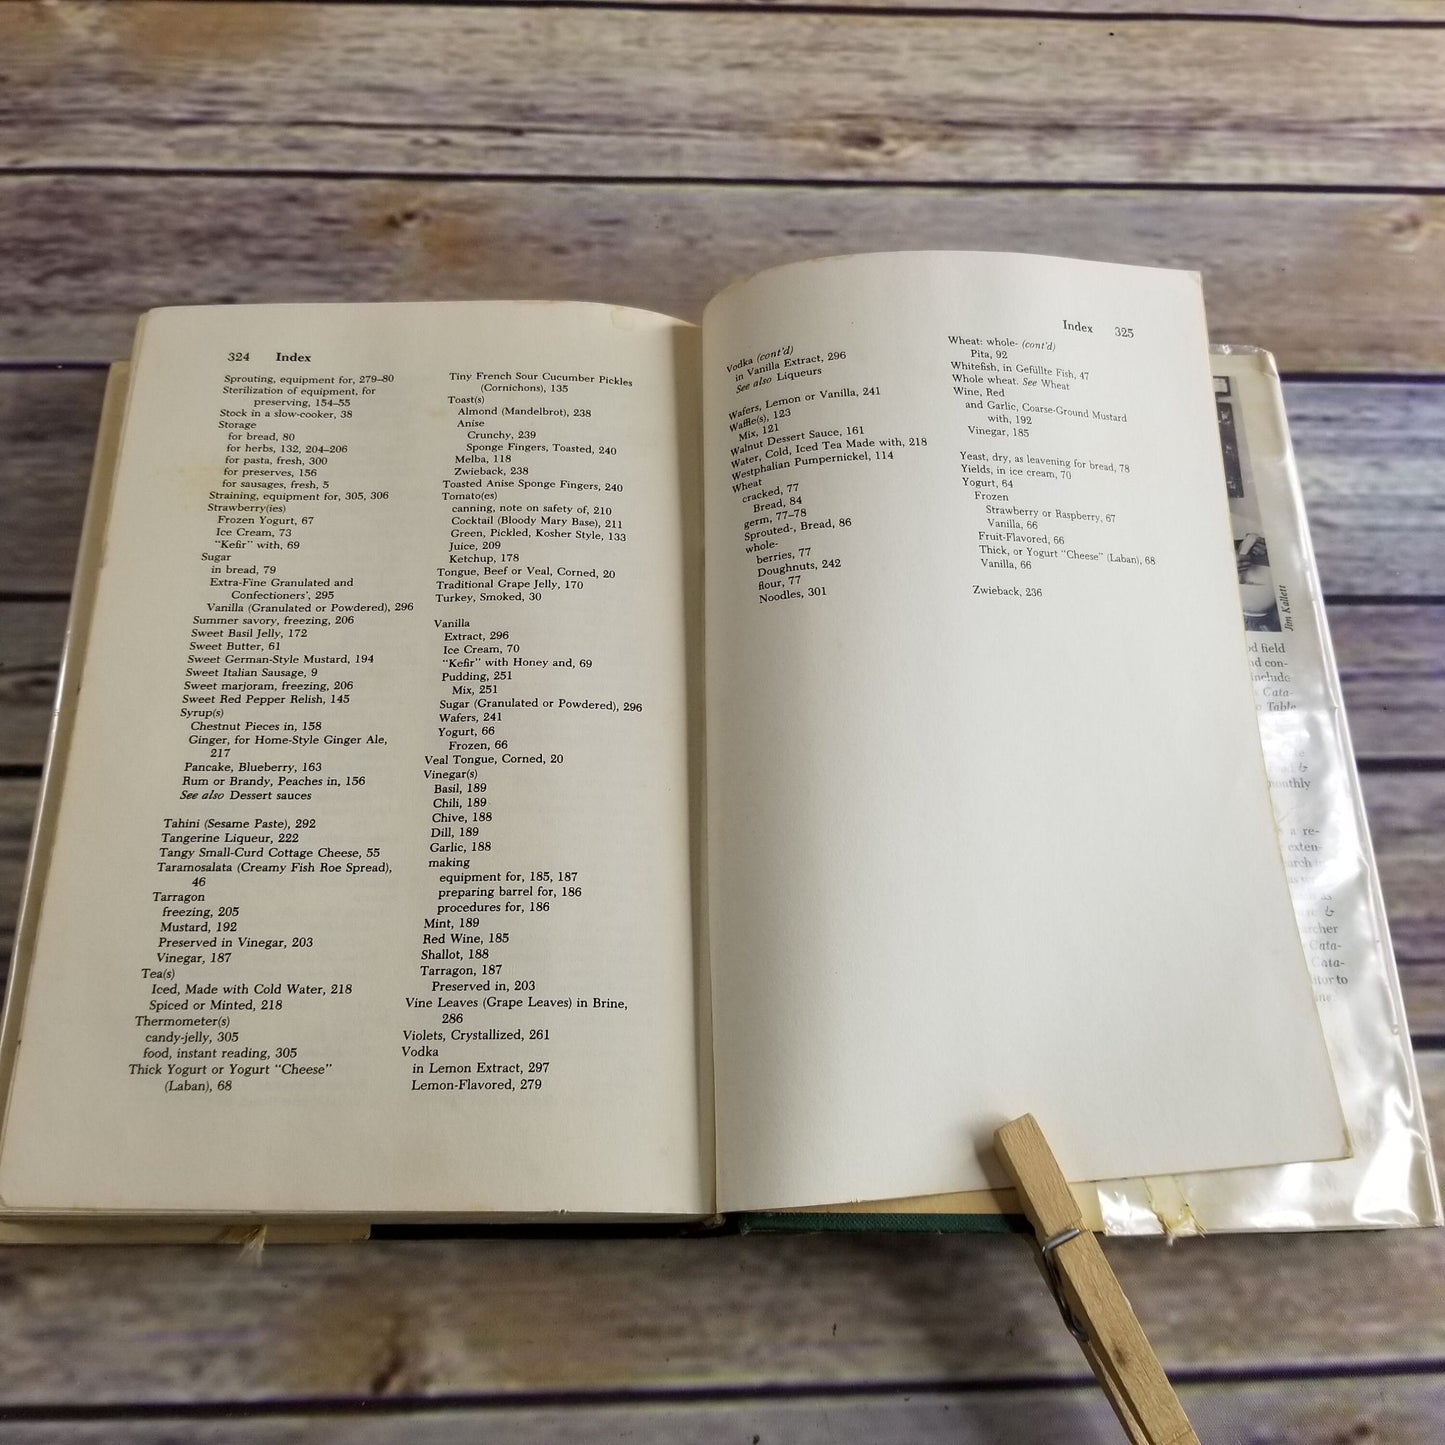 324 Index
Sprouting, equipment for, 279–80
Sterilization of equipment, for
preserving, 154–55
Stock in a slow-cooker, 38
Storage
for bread, 80
for herbs, 132, 204–206
for pasta, fresh, 300
for preserves, 156
for sausages, fresh, 5
Straining, equipment for, 305, 306
Strawberry(ies)
Frozen Yogurt, 67
Ice Cream, 73
"Kefir" with, 69
Sugar
in bread, 79
Extra-Fine Granulated and
Confectioners', 295
Vanilla (Granulated or Powdered), 296
Summer savory, freezing, 206
Sweet Basil Jelly, 172
Sweet Butter, 61
Sweet German-Style Mustard, 194
Sweet Italian Sausage, 9
Sweet marjoram, freezing, 206
Sweet Red Pepper Relish, 145
Syrup(s)
Chestnut Pieces in, 158
Ginger, for Home-Style Ginger Ale,
217
Pancake, Blueberry, 163
Rum or Brandy, Peaches in, 156
See also Dessert sauces
Tahini (Sesame Paste), 292
Tangerine Liqueur, 222
Tangy Small-Curd Cottage Cheese, 55
Taramosalata (Creamy Fish Roe Spread),
46
Tarragon
freezing, 205
Mustard, 192
Preserved in Vinegar, 203
Vinegar, 187
Tea(s)
Iced, Made with Cold Water, 218
Spiced or Minted, 218
Thermometer(s)
candy-jelly, 305
food, instant reading, 305
Thick Yogurt or Yogurt "Cheese"
(Laban), 68
Tiny French Sour Cucumber Pickles
(Cornichons), 135
Toast(s)
Almond (Mandelbrot), 238
Anise
Crunchy, 239
Sponge Fingers, Toasted, 240
Melba, 118
Zwieback, 238
Toasted Anise Sponge Fingers, 240
Tomato(es)
canning, note on safety of, 210
Cocktail (Bloody Mary Base), 211
Green, Pickled, Kosher Style, 133
Juice, 209
Ketchup, 178
Tongue, Beef or Veal, Corned, 20
Traditional Grape Jelly, 170
Turkey, Smoked, 30
Vanilla
Extract, 296
Ice Cream, 70
"Kefir" with Honey and, 69
Pudding, 251
Mix, 251
Sugar (Granulated or Powdered), 296
Wafers, 241
Yogurt, 66
Frozen, 66
Veal Tongue, Corned, 20
Vinegar(s)
Basil, 189
Chili, 189
Chive, 188
Dill, 189
Garlic, 188
making
equipment for, 185, 187
preparing barrel for, 186
procedures for, 186
Mint, 189
Red Wine, 185
Shallot, 188
Tarragon, 187
Preserved in, 203
Vine Leaves (Grape Leaves) in Brine,
286
Violets, Crystallized, 261
Vodka
in Lemon Extract, 297
Lemon-Flavored, 279
Index 325
Vodka (cont'd)
in Vanilla Extract, 296
See also Liqueurs
Wafers, Lemon or Vanilla, 241
Waffle(s), 123
Mix, 121
Walnut Dessert Sauce, 161
Water, Cold, Iced Tea Made with, 218
Westphalian Pumpernickel, 114
Wheat
cracked, 77
Bread, 84
germ, 77–78
Sprouted-, Bread, 86
whole-
berries, 77
Doughnuts, 242
flour, 77
Noodles, 301
Wheat: whole- (cont'd)
Pita, 92
Whitefish, in Gefüllte Fish, 47
Whole wheat. See Wheat
Wine, Red
and Garlic, Coarse-Ground Mustard
with, 192
Vinegar, 185
Yeast, dry, as leavening for bread, 78
Yields, in ice cream, 70
Yogurt, 64
Frozen
Strawberry or Raspberry, 67
Vanilla, 66
Fruit-Flavored, 66
Thick, or Yogurt "Cheese" (Laban), 68
Vanilla, 66
Zwieback, 236
Jim Kallett
field
con-
include
Cata-
Table
monthly
a re-
exten-
Cata-